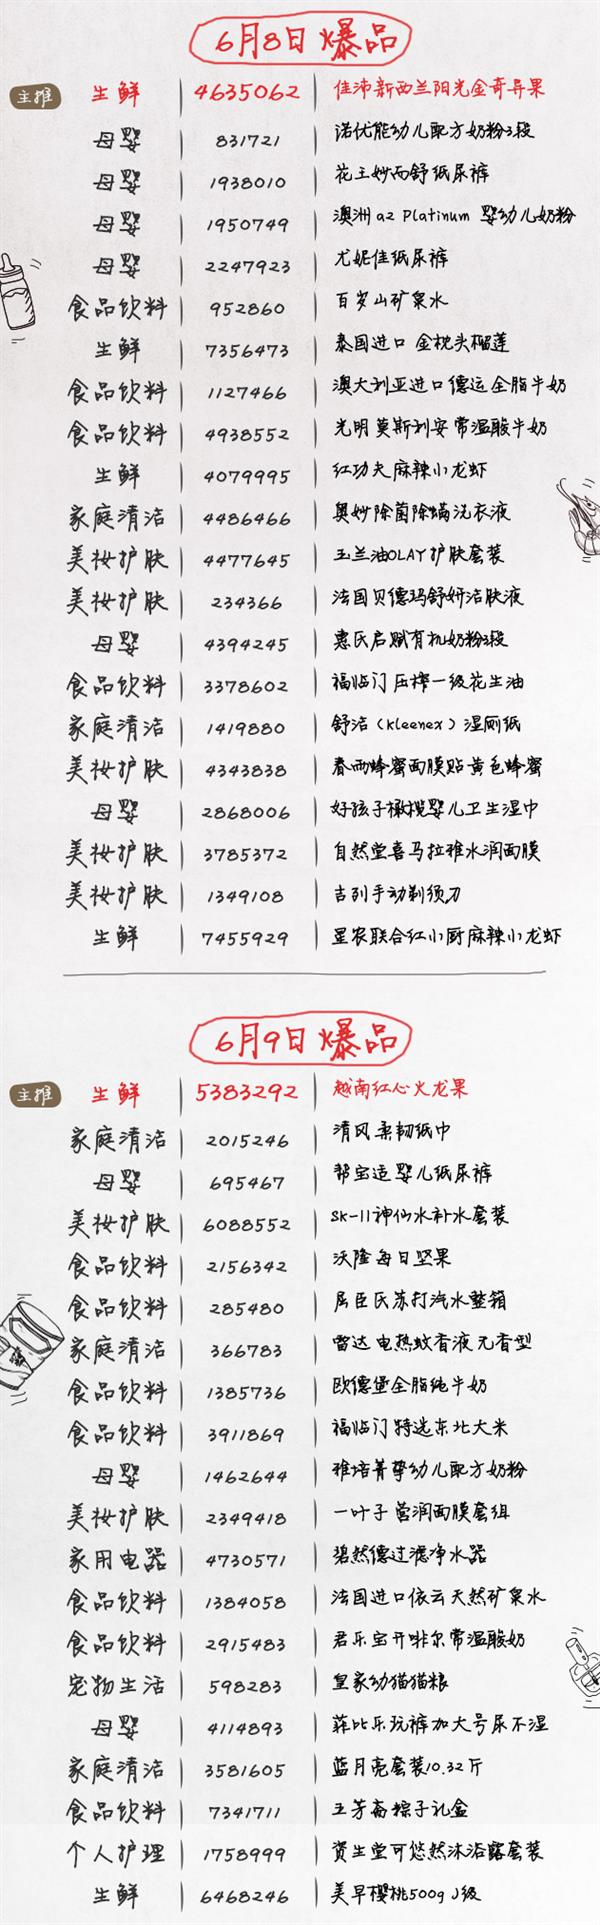 6月8日爆品
主推 生鲜 4635062 佳沛新西兰阳光金奇异果
母婴 831721 诺优能幼儿配方奶粉3段
母婴 1938010 花王妙而舒纸尿裤
母婴 1950749 澳洲a2 Platinum 婴幼儿奶粉
母婴 2247923 尤妮佳纸尿裤
食品饮料 952860 百岁山矿泉水
生鲜 7356473 泰国进口 金枕头榴莲
食品饮料 1127466 澳大利亚进口德运全脂牛奶
食品饮料 4938552 光明莫斯利安常温酸牛奶
生鲜 4079995 红功夫麻辣小龙虾
家庭清洁 4486466 奥妙除菌除螨洗衣液
美妆护肤 4477645 玉兰油OLAY护肤套装
美妆护肤 234366 法国贝德玛舒妍洁肤液
母婴 4394245 惠氏启赋有机奶粉3段
食品饮料 3378602 福临门压榨一级花生油
家庭清洁 1419880 舒洁（Kleenex）湿厕纸
美妆护肤 4343838 春雨蜂蜜面膜贴黄色蜂蜜
母婴 2868006 好孩子橄榄婴儿卫生湿巾
美妆护肤 3785372 自然堂喜马拉雅水润面膜
美妆护肤 1349108 吉列手动剃须刀
生鲜 7455929 星农联合红小厨麻辣小龙虾
6月9日爆品
主推 生鲜 5383292 越南红心火龙果
家庭清洁 2015246 清风柔韧纸巾
母婴 695467 帮宝适婴儿纸尿裤
美妆护肤 6088552 SK-II神仙水补水套装
食品饮料 2156342 沃隆每日坚果
食品饮料 285480 屈臣氏苏打汽水整箱
家庭清洁 366783 雷达电热蚊香液无香型
食品饮料 1385736 欧德堡全脂纯牛奶
食品饮料 3911869 福临门特选东北大米
母婴 1462644 雅培菁挚幼儿配方奶粉
美妆护肤 2349418 一叶子营润面膜套组
家用电器 4730571 碧然德过滤净水器
食品饮料 1384058 法国进口依云天然矿泉水
食品饮料 2915483 君乐宝开啡尔常温酸奶
宠物生活 598283 皇家幼猫猫粮
母婴 4114893 菲比乐玩裤加大号尿不湿
家庭清洁 3581605 蓝月亮套装10.32斤
食品饮料 7341711 五芳斋粽子礼盒
个人护理 1758999 资生堂可悠然沐浴露套装
生鲜 6468246 美早樱桃500g J级